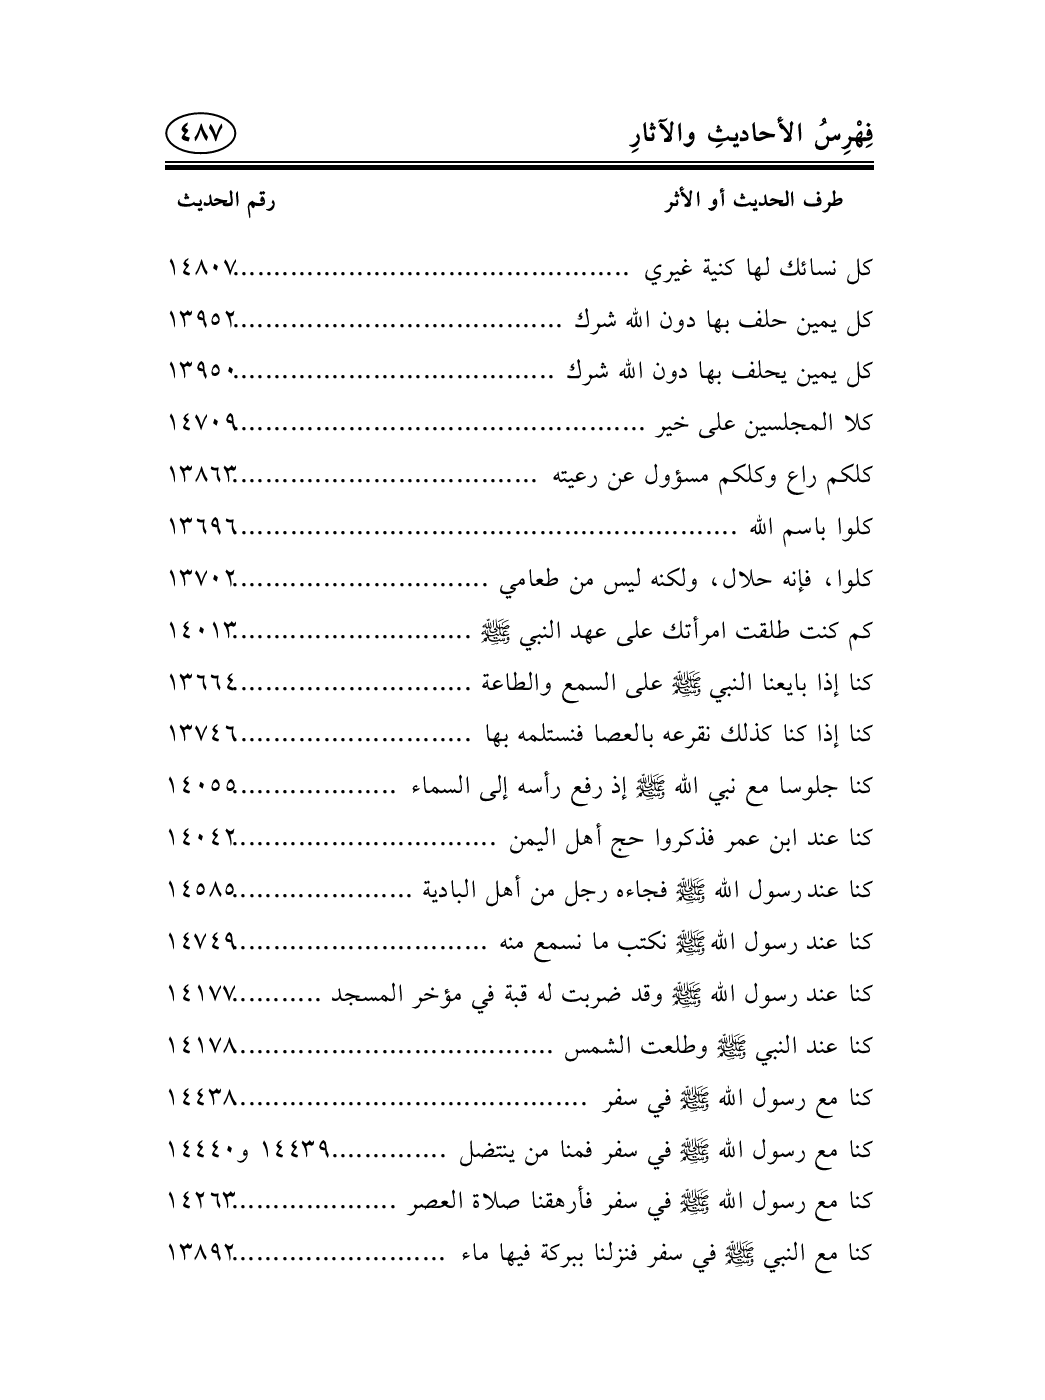 فِهْرِسُ الأحاديثِ والآثارِ ٤٨٧
طرف الحديث أو الأثر رقم الحديث
كل نسائك لها كنية غيري ................................................ ١٤٨٠٧
كل يمين حلف بها دون الله شرك ........................................ ١٣٩٥٢
كل يمين يحلف بها دون الله شرك ....................................... ١٣٩٥٠
كلا المجلسين على خير ................................................. ١٤٧٠٩
كلكم راع وكلكم مسؤول عن رعيته ..................................... ١٣٨٦٣
كلوا باسم الله ............................................................ ١٣٦٩٦
كلوا، فإنه حلال، ولكنه ليس من طعامي ............................... ١٣٧٠٢
كم كنت طلقت امرأتك على عهد النبي ﷺ ............................. ١٤٠١٣
كنا إذا بايعنا النبي ﷺ على السمع والطاعة ............................ ١٣٦٦٤
كنا إذا كنا كذلك نقرعه بالعصا فنستلمه بها ............................ ١٣٧٤٦
كنا جلوسا مع نبي الله ﷺ إذ رفع رأسه إلى السماء .................... ١٤٠٥٥
كنا عند ابن عمر فذكروا حج أهل اليمن ................................ ١٤٠٤٢
كنا عند رسول الله ﷺ فجاءه رجل من أهل البادية ...................... ١٤٥٨٥
كنا عند رسول الله ﷺ نكتب ما نسمع منه .............................. ١٤٧٤٩
كنا عند رسول الله ﷺ وقد ضربت له قبة في مؤخر المسجد ........... ١٤١٧٧
كنا عند النبي ﷺ وطلعت الشمس ...................................... ١٤١٧٨
كنا مع رسول الله ﷺ في سفر .......................................... ١٤٤٣٨
كنا مع رسول الله ﷺ في سفر فمنا من ينتضل .............. ١٤٤٣٩ و١٤٤٤٠
كنا مع رسول الله ﷺ في سفر فأرهقنا صلاة العصر .................... ١٤٢٦٣
كنا مع النبي ﷺ في سفر فنزلنا ببركة فيها ماء .......................... ١٣٨٩٢